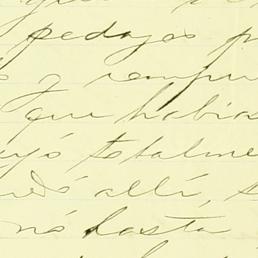 que
pedazos p
s y rompi
que habia
yó totalme
edó allí, s
nó hasta